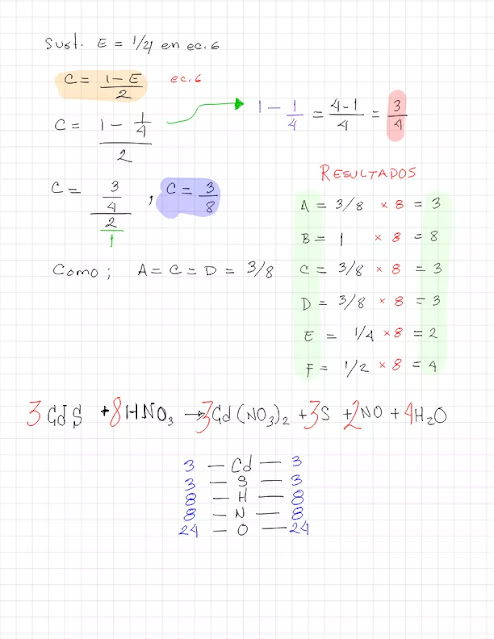 Sust. E = 1/4 en ec. 6
C = 1 - E / 2 ec. 6
C = 1 - 1/4 / 2
1 - 1/4 = 4-1/4 = 3/4
C = 3/4 / 2/1 , C = 3/8
Como ; A = C = D = 3/8
RESULTADOS
A = 3/8 × 8 = 3
B = 1 × 8 = 8
C = 3/8 × 8 = 3
D = 3/8 × 8 = 3
E = 1/4 × 8 = 2
F = 1/2 × 8 = 4
3CdS + 8HNO3 → 3Cd(NO3)2 + 3S + 2NO + 4H2O
3 — Cd — 3
3 — S — 3
8 — H — 8
8 — N — 8
24 — O — 24